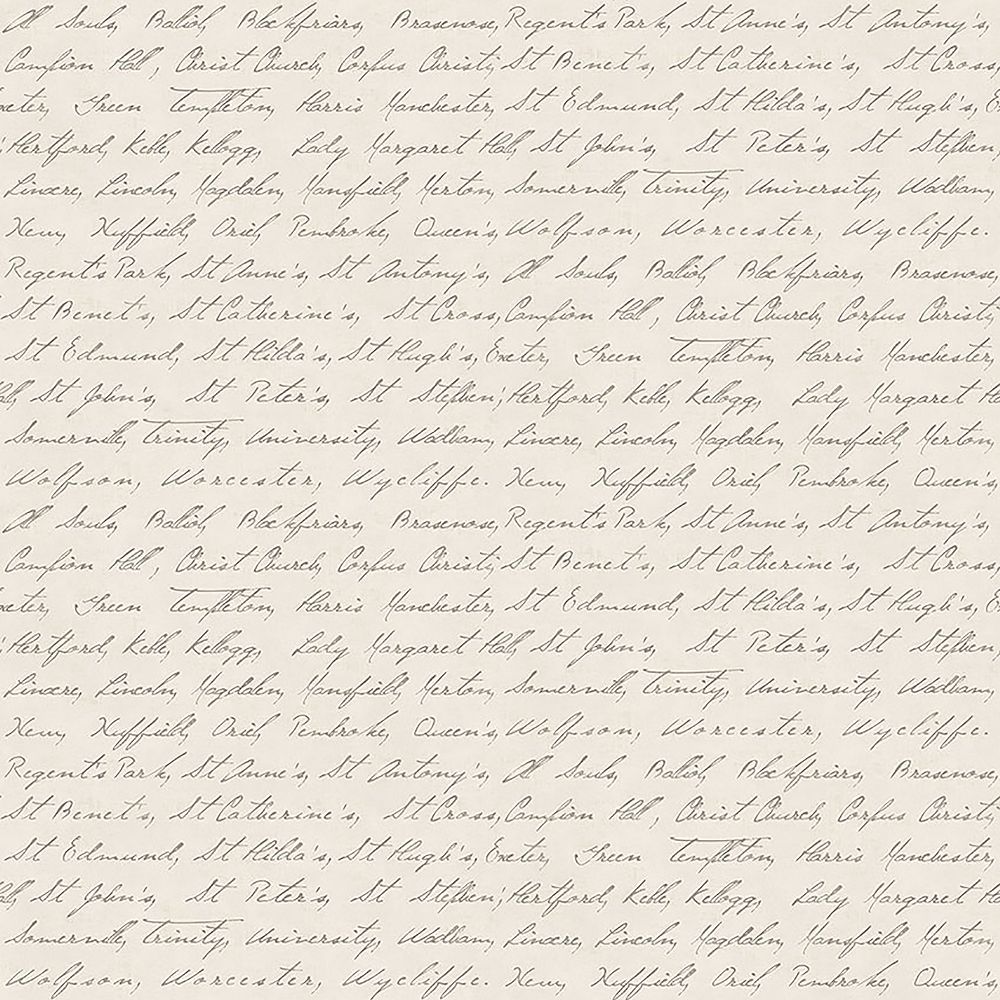 All Souls, Balliol, Blackfriars, Brasenose, Regent's Park, St Anne's, St Antony's,
Campion Hall, Christ Church, Corpus Christi, St Benet's, St Catherine's, St Cross,
xeter, Green Templeton, Harris Manchester, St Edmund, St Hilda's, St Hugh's, E
Hertford, Keble, Kellogg, Lady Margaret Hall, St John's, St Peter's, St Stephen,
Linacre, Lincoln, Magdalen, Mansfield, Merton, Somerville, Trinity, University, Wadham,
New, Nuffield, Oriel, Pembroke, Queen's, Wolfson, Worcester, Wycliffe.
Regent's Park, St Anne's, St Antony's, All Souls, Balliol, Blackfriars, Brasenose,
St Benet's, St Catherine's, St Cross, Campion Hall, Christ Church, Corpus Christi
St Edmund, St Hilda's, St Hugh's, Exeter, Green Templeton, Harris Manchester,
all, St John's, St Peter's, St Stephen; Hertford, Keble, Kellogg, Lady Margaret H
Somerville, Trinity, University, Wadham, Linacre, Lincoln, Magdalen, Mansfield, Merton,
Wolfson, Worcester, Wycliffe. New, Nuffield, Oriel, Pembroke, Queen's,
All Souls, Balliol, Blackfriars, Brasenose, Regent's Park, St Anne's, St Antony's,
Campion Hall, Christ Church, Corpus Christi, St Benet's, St Catherine's, St Cross,
xeter, Green Templeton, Harris Manchester, St Edmund, St Hilda's, St Hugh's, E
Hertford, Keble, Kellogg, Lady Margaret Hall, St John's, St Peter's, St Stephen,
Linacre, Lincoln, Magdalen, Mansfield, Merton, Somerville, Trinity, University, Wadham,
New, Nuffield, Oriel, Pembroke, Queen's, Wolfson, Worcester, Wycliffe.
Regent's Park, St Anne's, St Antony's, All Souls, Balliol, Blackfriars, Brasenose,
St Benet's, St Catherine's, St Cross, Campion Hall, Christ Church, Corpus Christi
St Edmund, St Hilda's, St Hugh's, Exeter, Green Templeton, Harris Manchester,
all, St John's, St Peter's, St Stephen; Hertford, Keble, Kellogg, Lady Margaret H
Somerville, Trinity, University, Wadham, Linacre, Lincoln, Magdalen, Mansfield, Merton,
Wolfson, Worcester, Wycliffe. New, Nuffield, Oriel, Pembroke, Queen's,